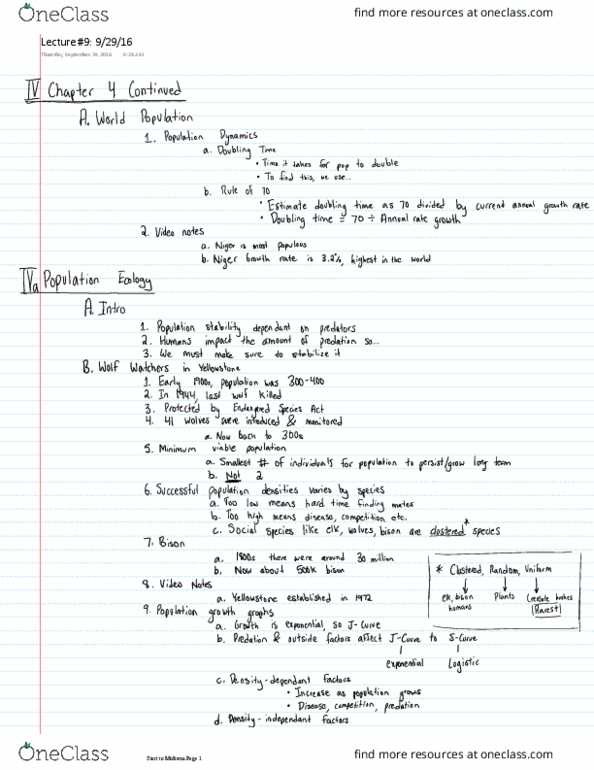 OneClass
find more resources at oneclass.com
Lecture#9: 9/29/16
Thursday, September 29, 2016
IV Chapter 4 Continued
A. World Population
1. Population Dynamics
a. Doubling Time
• Time it takes for pop to double
• To find this, we use...
b. Rule of 70
• Estimate doubling time as 70 divided by current annual growth rate
• Doubling time = 70 ÷ Annual rate growth
2. Video notes
a. Niger is most populous
b. Niger Growth rate is 3.2%, highest in the world
IVa Population Ecology
A. Intro
1. Population stability dependant on predators
2. Humans impact the amount of predation so...
3. We must make sure to stabilize it
B. Wolf Watchers in Yellowstone
1. Early 1900s, population was 300-400
2. In 1944, last wolf killed
3. Protected by Endangered Species Act
4. 41 wolves were introduced & monitored
a. Now back to 300s
5. Minimum viable population
a. Smallest # of individuals for population to persist/grow long term
b. Not 2
6. Successful population densities varies by species
a. Too low means hard time finding mates
b. Too high means disease, competition etc.
c. Social species like elk, wolves, bison are clustered* species
7. Bison
a. 1800s there were around 30 million
b. Now about 500k bison
* Clustered, Random, Uniform
elk, bison humans
Plants
Creosote bushes
Rarest
8. Video Notes
a. Yellowstone established in 1972
9. Population growth graphs
a. Growth is exponential, so J-Curve
b. Predation & outside factors affect J-Curve to S-Curve
exponential
Logistic
c. Density-dependant Factors
• Increase as population grows
• Disease, competition, predation
d. Density-independant factors
OneClass
Start to Midterm Page 1
find more resources at oneclass.com